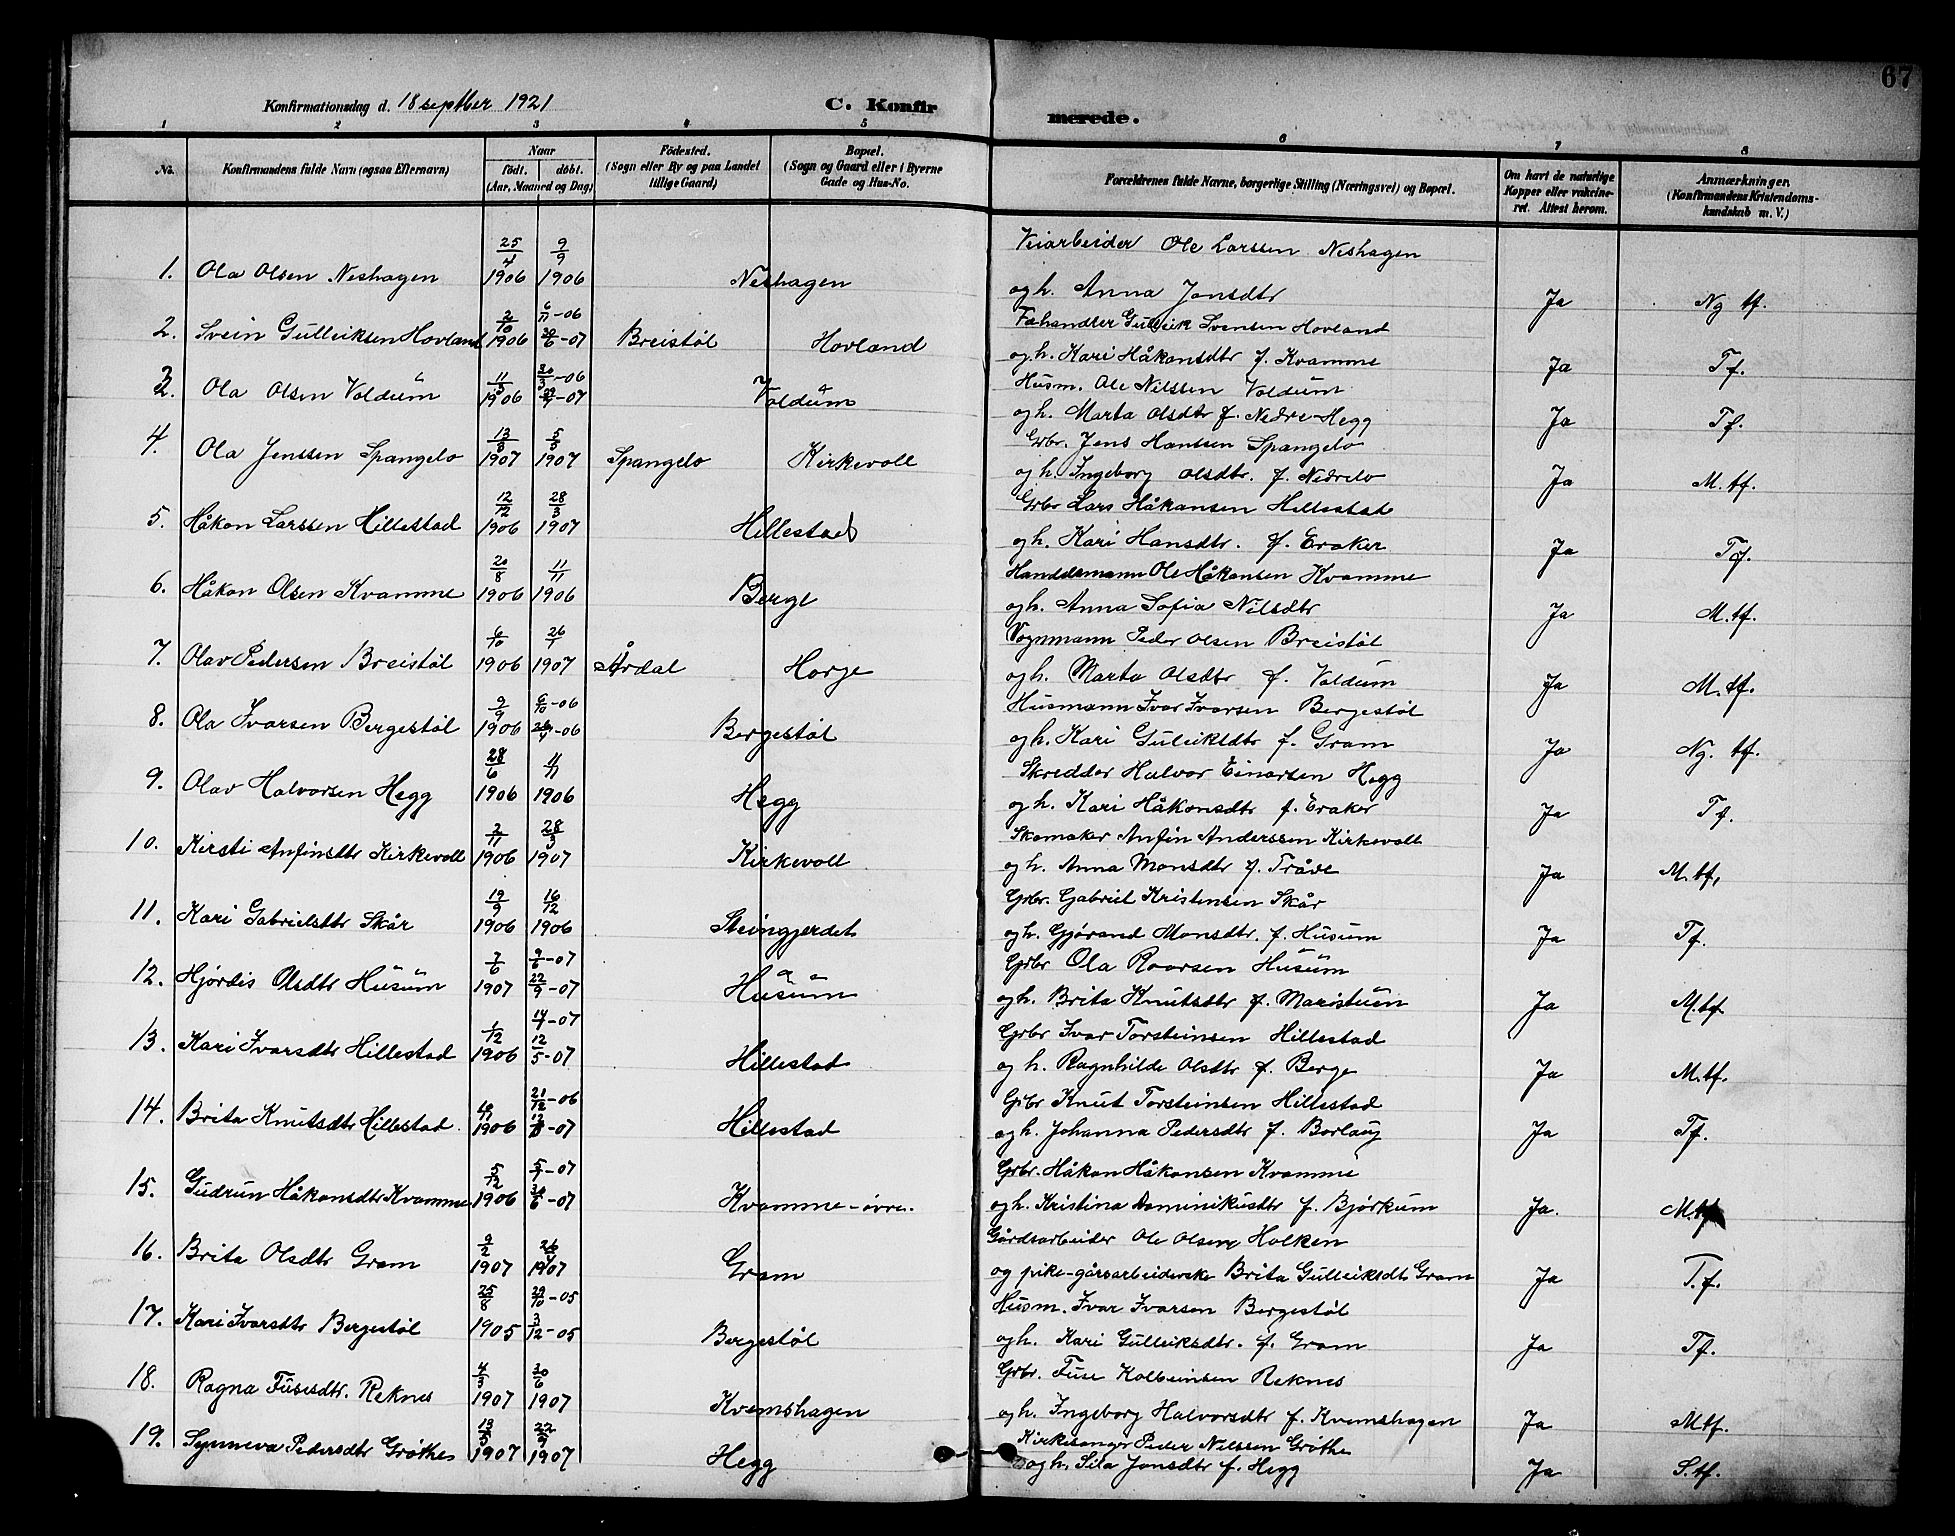 67
Konfirmationsdag d. 18 septber 1921 C. Konfirmerede.
1 2 3 4 5 6 7 8
No. Konfirmandens fulde Navn (ogsaa Efternavn) Naar født. døbt. (Aar, Maaned og Dag) Fødested. (Sogn eller By og paa Landet tillige Gaard) Bopæl. (Sogn og Gaard eller i Byerne Gade og Hus-No. Forældrenes fulde Navne, borgerlige Stilling (Næringsvei) og Bopæl. Om havt de naturlige Kopper eller vakcineret. Attest herom. Anmærkninger. (Konfirmandens Kristendomskundskab m. V.)
1. Ola Olsen Neshagen 25/4 1906 9/9 1906 Neshagen Veiarbeider Ole Larssen Neshagen
og h. Anna Jonsdtr Ja Ng tf.
2. Svein Gulleiksen Hovland 2/10 1906 6/11-06 30/6-07 Breistøl Hovland Fæhandler Gulleik Svensen Hovland
og h. Kari Håkonsdtr f. Kvamme Ja Tf.
3. Ola Olsen Voldum 11/3 1906 30/3-06 -07 Voldum Husm. Ole Nilssen Voldum
og h. Marta Olsdtr f. Nedre-Hegg Ja Tf.
4. Ola Jenssen Spangelo 13/3 1907 5/5 1907 Spangelo Kirkevoll Grbr. Jens Hanssen Spangelo
og h. Ingeborg Olsdtr. f. Nedrelo Ja M. tf.
5. Håkon Larssen Hillestad 12/12 1906 28/3 1907 Hillestad Grbr Lars Håkonsen Hillestad
og h. Kari Hansdtr. f. Eraker Ja Tf.
6. Håkon Olsen Kvamme 20/8 1906 11/11 1906 Berge Handelsmann Ole Håkonsen Kvamme
og h. Anna Sofia Nilsdtr Ja M. tf.
7. Olav Pedersen Breistøl 6/10 1906 26/1 1907 Årdal Horge Vognmann Peder Olsen Breistøl
og h. Marta Olsdtr f. Voldum Ja M. tf.
8. Ola Ivarsen Bergestøl 2/9 1906 6/10-06 -06 Bergestøl Husmann Ivar Ivarsen Bergestøl
og h. Kari Guleiksdtr f. Gram Ja Ng. tf.
9. Olav Halvorsen Hegg 28/6 1906 11/11 1906 Hegg Skredder Halvor Einarsen Hegg
og h. Kari Håkonsdtr f. Eraker Ja Tf.
10. Kirsti Anfinsdtr Kirkevoll 2/11 1906 28/3 1907 Kirkevoll Skomaker Anfin Anderssen Kirkevoll
og h. Anna Monsdtr f. Tråve Ja M. tf,
11. Kari Gabrielsdtr Skår 19/9 1906 16/12 1906 Steingjerdet Grbr. Gabriel Kristensen Skår
og h. Gjørand Monsdtr. f. Husum Ja Tf.
12. Hjørdis Olsdtr Husum 7/6 1907 9/6-07 22/9-07 Husum Grbr Ola Roarsen Husum
og h. Brita Knutsdtr f. Maristuen Ja M. tf
13. Kari Ivarsdtr Hillestad 1/12 1906 14/1-07 12/5-07 Hillestad Grbr Ivar Torsteinsen Hillestad
og h. Ragnhilde Olsdtr f. Berge Ja M. tf.
14. Brita Knutsdtr Hillestad 1906 21/12-06 -07 Hillestad Grbr Knut Torsteinsen Hillestad
og h. Johanna Pedersdtr f. Borlaug Ja Tf.
15. Gudrun Håkonsdtr Kvamme 5/12 1906 5/1-07 30/6-07 Kvamme-øvre. Grbr. Håkon Håkonsen Kvamme
og h. Kristina Dominikusdtr f. Bjørkum Ja. M. tf
16. Brita Olsdtr Gram 9/2 1907 1907 Gram Gårdsarbeider Ole Olsen Holken
og pike-gårsarbeiderske Brita Gulleiksdtr Gram Ja T. f.
17. Kari Ivarsdtr Bergestøl 25/8 1905 29/10-05 3/12-05 Bergestøl Husm. Ivar Ivarsen Bergestøl
og h. Kari Gulleiksdtr. f. Gram Ja Tf.
18. Ragna Fusesdtr. Reknes 4/3 1907 30/6 1907 Kvemshagen Grbr. Fuse Kolbeinsen Reknes
og h. Ingeborg Halvorsdtr f. Kvemshagen Ja M tf.
19. Synneva Pedersdtr Grøthe 13/5 1907 22/9 1907 Hegg Kirkesanger Peder Nilssen Grøthe
og h. Sila Jonsdtr f. Hegg Ja S. tf.